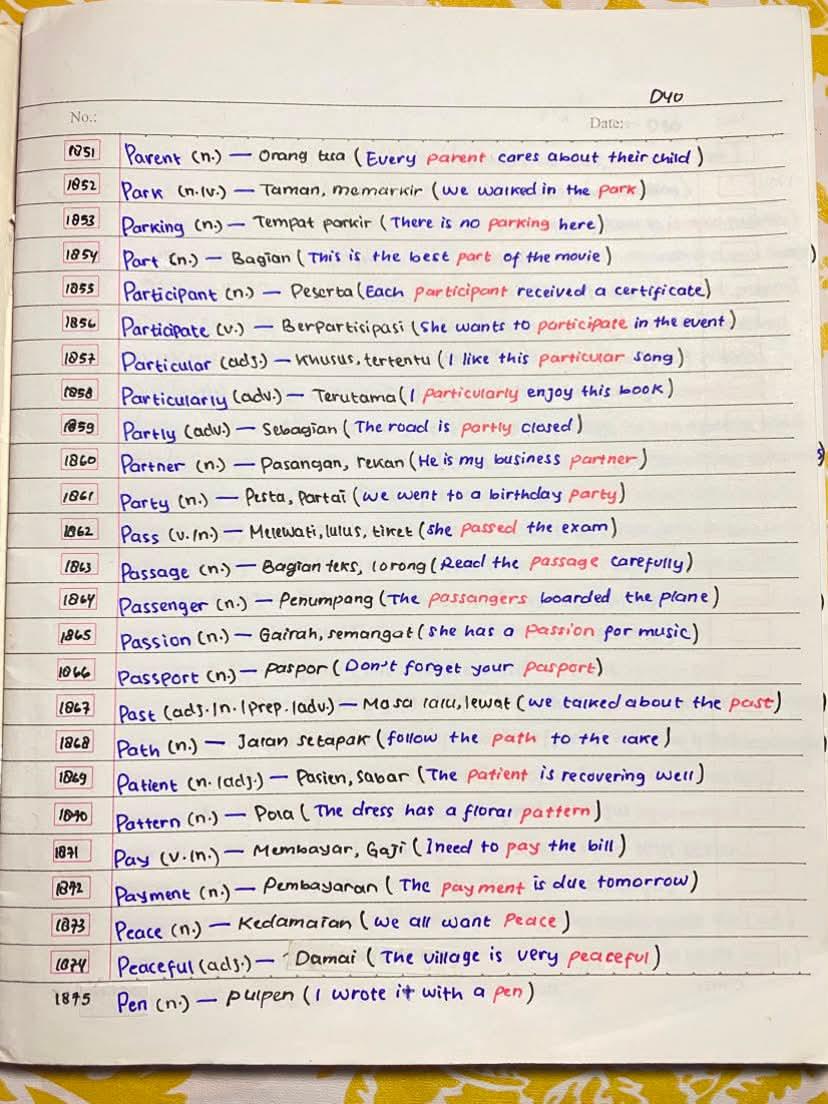 D40
No.: Date:
1851 Parent (n.) — Orang tua (Every parent cares about their child)
1852 Park (n./v.) — Taman, memarkir (we walked in the park)
1853 Parking (n.) — Tempat parkir (There is no parking here)
1854 Part (n.) — Bagian (This is the best part of the movie)
1855 Participant (n.) — Peserta (Each participant received a certificate)
1856 Participate (v.) — Berpartisipasi (she wants to participate in the event)
1857 Particular (adj.) — Khusus, tertentu (I like this particular song)
1858 Particularly (adv.) — Terutama (I particularly enjoy this book)
1859 Partly (adv.) — Sebagian (The road is partly closed)
1860 Partner (n.) — Pasangan, rekan (He is my business partner)
1861 Party (n.) — Pesta, Partai (we went to a birthday party)
1862 Pass (v./n.) — Melewati, lulus, tiket (she passed the exam)
1863 Passage (n.) — Bagian teks, lorong (Read the passage carefully)
1864 Passenger (n.) — Penumpang (The passangers boarded the plane)
1865 Passion (n.) — Gairah, semangat (she has a passion for music)
1866 Passport (n.) — Paspor (Don't forget your pasport)
1867 Past (adj./n./prep./adv.) — Masa lalu, lewat (we talked about the past)
1868 Path (n.) — Jalan setapak (follow the path to the lake)
1869 Patient (n./adj.) — Pasien, sabar (The patient is recovering well)
1870 Pattern (n.) — Pola (The dress has a floral pattern)
1871 Pay (v./n.) — Membayar, Gaji (I need to pay the bill)
1872 Payment (n.) — Pembayaran (The payment is due tomorrow)
1873 Peace (n.) — Kedamaian (we all want Peace)
1874 Peaceful (adj.) — Damai (The village is very peaceful)
1875 Pen (n.) — pulpen (I wrote it with a pen)